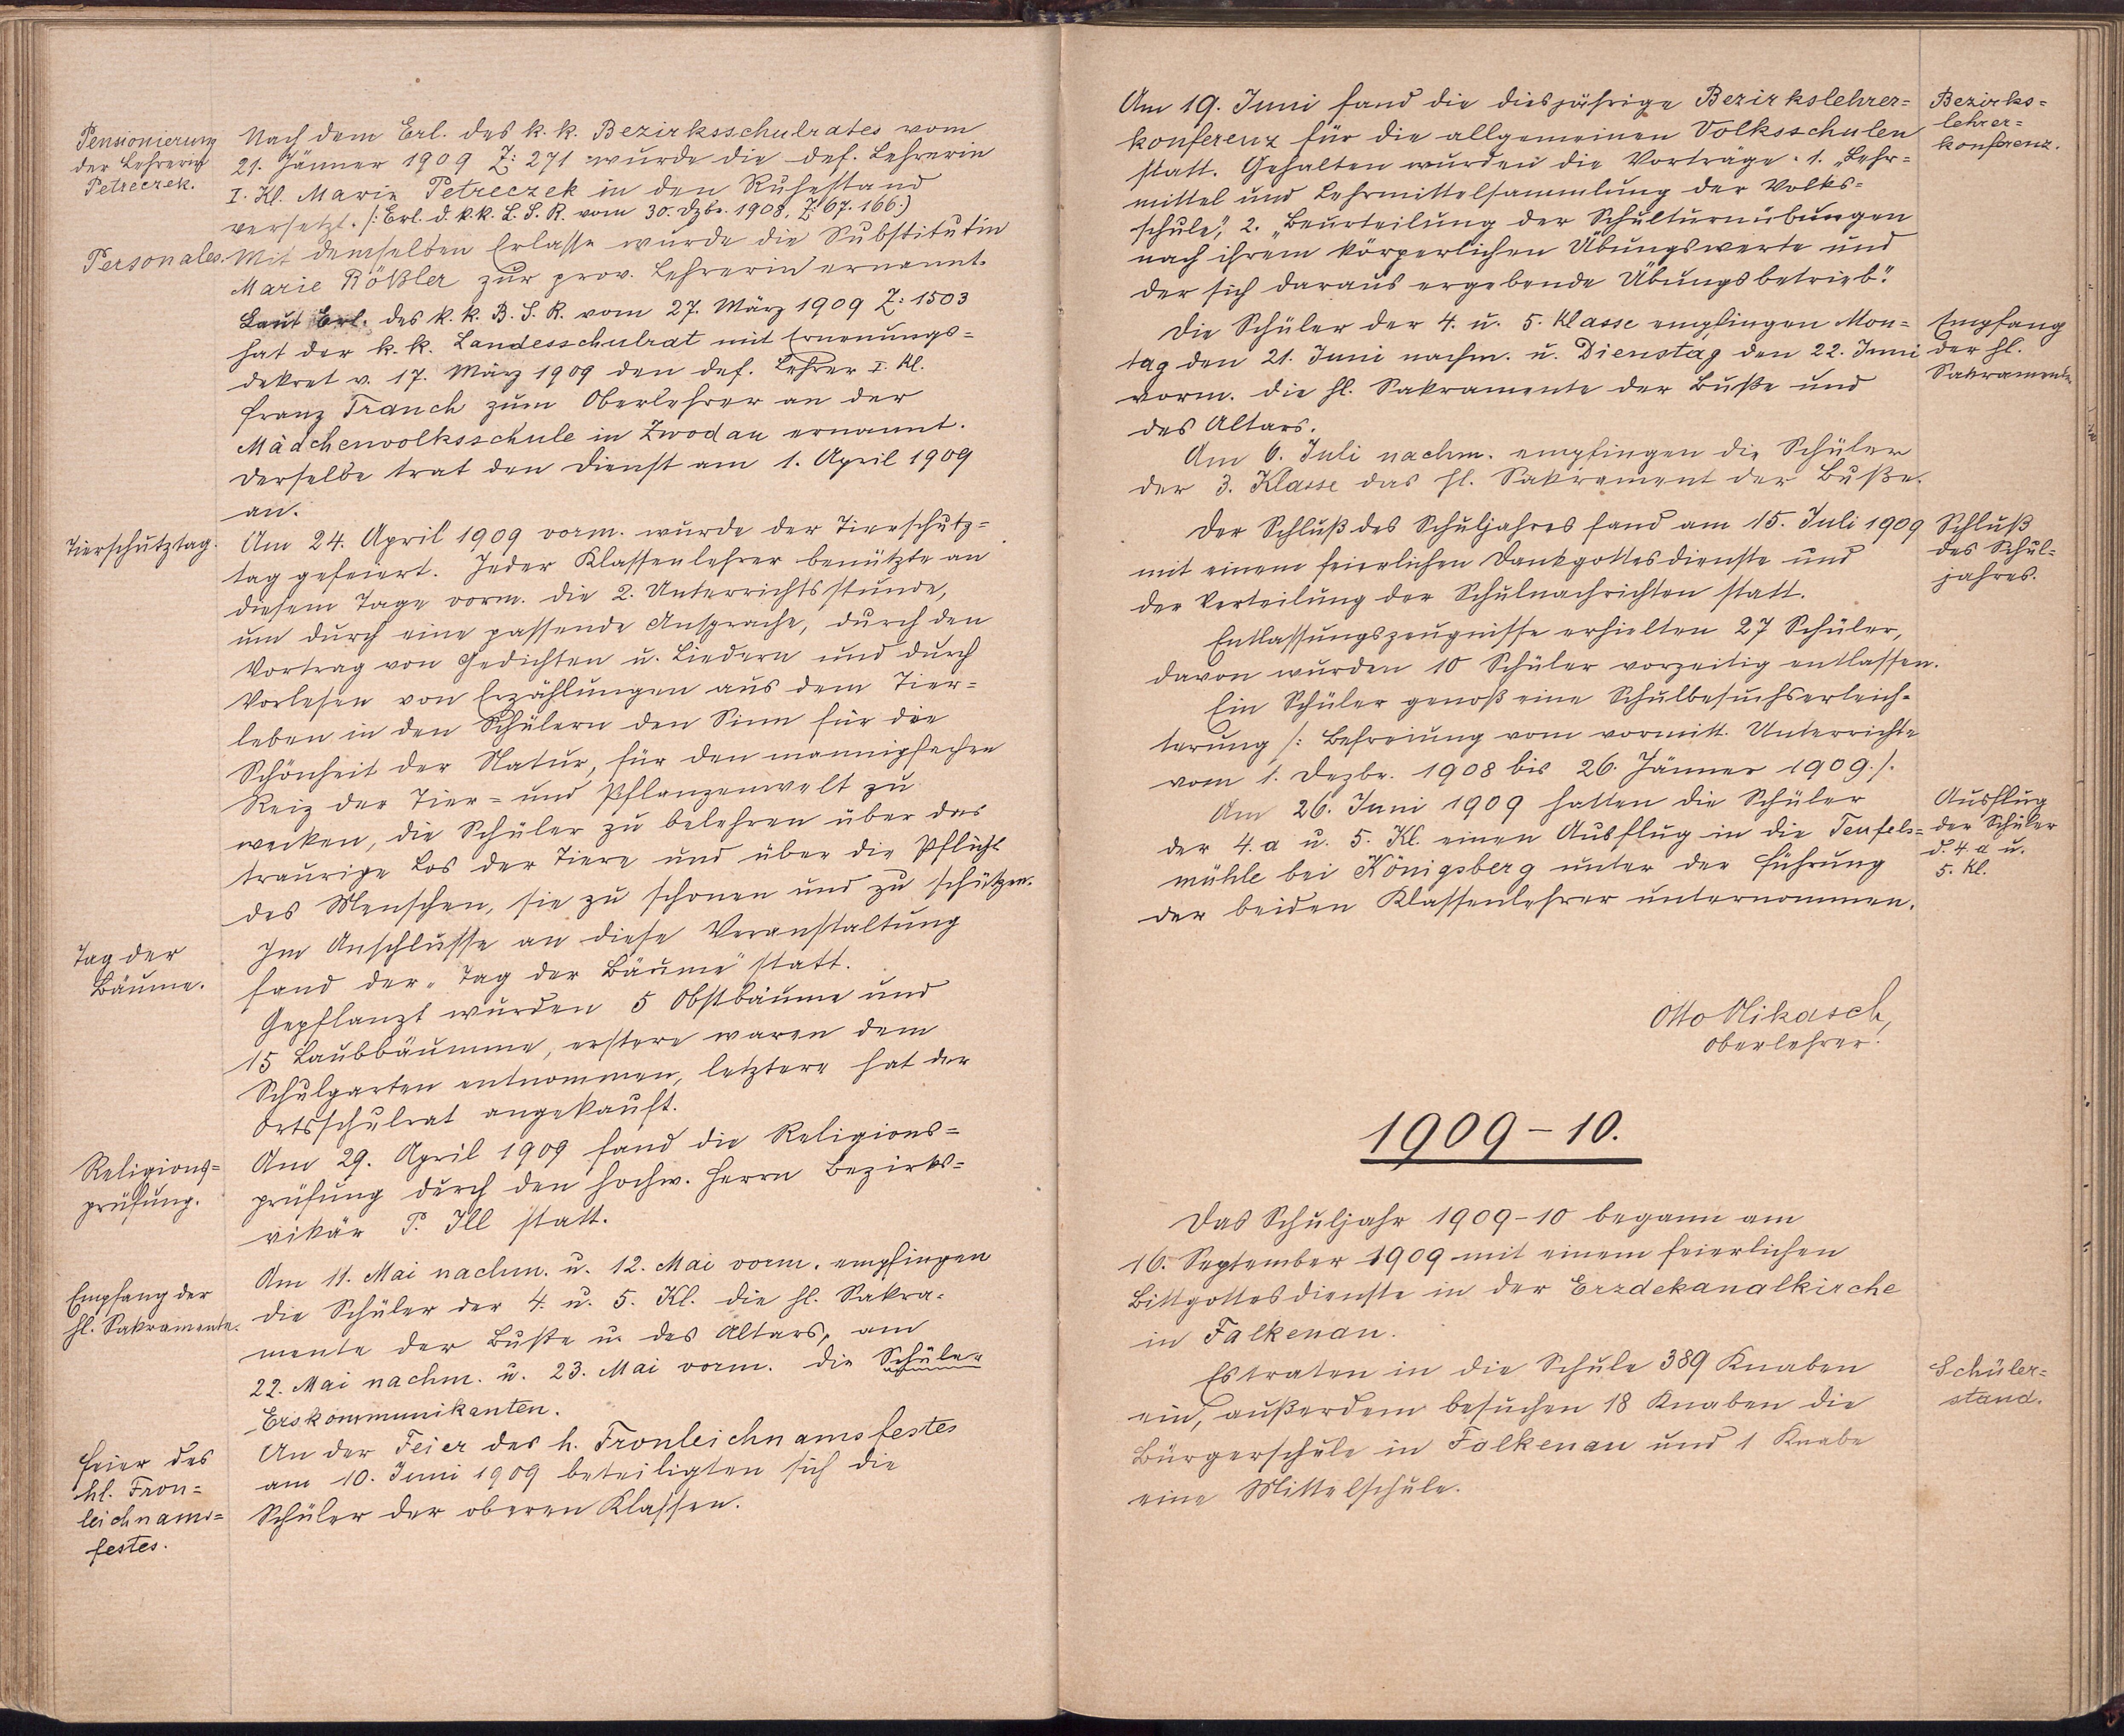 Pensionierung
der Lehrerin
Petreczek.
Nach dem Erl. des k. k. Bezirksschulrates vom
21. Jänner 1909 Z: 271 wurde die def. Lehrerin
I. Kl. Marie Petreczek in den Ruhestand
versetzt. /: Erl. d. k. k. L. S. R. vom 30. Dzbr. 1908, Z: 67.166:)
Personales.
Mit demselben Erlasse wurde die Substitutin
Marie Rößler zur prov. Lehrerin ernannt.
Laut Erl. des k. k. B. S. R. vom 27. März 1909 Z: 1503
hat der k. k. Landesschulrat mit Ernenungs=
dekret v. 17. März 1909 den def. Lehrer I. Kl.
Franz Tranch zum Oberlehrer an der
Mädchenvolksschule in Zwodau ernannt.
Derselbe trat den Dienst am 1. April 1909
an.
Tierschutztag.
Am 24. April 1909 vorm. wurde der Tierschutz=
tag gefeiert. Jeder Klassenlehrer benützte an
diesem Tage vorm. die 2. Unterrichtsstunde,
um durch eine passende Ansprache, durch den
Vortrag von Gedichten u. Liedern und durch
Vorlesen von Erzählungen aus dem Tier=
leben in den Schülern den Sinn für die
Schönheit der Natur, für den mannigfachen
Reiz der Tier= und Pflanzenwelt zu
wecken, die Schüler zu belehren über das
traurige Los der Tiere und über die Pflicht
des Menschen, sie zu schonen und zu schützen.
Tag der
Bäume.
Im Anschlusse an diese Veranstaltung
fand der „Tag der Bäume" statt.
Gepflanzt wurden 5 Obstbäume und
15 Laubbäumme, erstere waren dem
Schulgarten entnommen, letztere hat der
Ortsschulrat angekauft.
Religions=
prüfung.
Am 29. April 1909 fand die Religions=
prüfung durch den hochw. Herrn Bezirks=
vikär P. Ill statt.
Empfang der
hl. Sakramente.
Am 11. Mai nachm. u. 12. Mai vorm. empfingen
die Schüler der 4. u. 5. Kl. die hl. Sakra=
mente der Buße u. des Altars, am
22. Mai nachm. u. 23. Mai vorm. die Schüler
Erskommunikanten.
Feier des
hl. Fron=
leichnams=
festes.
An der Feier des h. Fronleichnamsfestes
am 10. Juni 1909 beteiligten sich die
Schüler der oberen Klassen.
Am 19. Juni fand die diesjährige Bezirkslehrer=
konferenz für die allgemeinen Volksschulen
statt. Gehalten wurden die Vorträge: 1. „Lehr=
mittel und Lehrmittelsammlung der Volks=
schule", 2. „Beurteilung der Schulturnübungen
nach ihrem körperlichen Übungswerte und
der sich daraus ergebende Übungsbetrieb".
Bezirks=
lehrer=
konferenz.
Die Schüler der 4. u. 5. Klasse empfingen Mon=
tag den 21. Juni nachm. u. Dienstag den 22. Juni
vorm. die hl. Sakramente der Buße und
des Altars.
Empfang
der hl.
Sakramente
Am 6. Juli nachm. empfingen die Schüler
der 3. Klasse das hl. Sakrament der Buße.
Der Schluß des Schuljahres fand am 15. Juli 1909
mit einem feierlichen Dankgottesdienste und
der Verteilung der Schulnachrichten statt.
Schluß
des Schul=
jahres.
Entlassungszeugnisse erhielten 27 Schüler,
davon wurden 10 Schüler vorzeitig entlassen.
Ein Schüler genoß eine Schulbesuchserleich=
terung /: Befreiung vom vormitt. Unterrichte
vom 1. Dezbr. 1908 bis 26. Jänner 1909./.
Am 26. Juni 1909 hatten die Schüler
der 4. a u. 5. Kl. einen Ausflug in die Teufels=
mühle bei Königsberg unter der Führung
der beiden Klassenlehrer unternommen.
Ausflug
der Schüler
d. 4. a u.
5. Kl.
Otto Nikasch,
Oberlehrer.
1909–10.
Das Schuljahr 1909–10 begann am
16. September 1909 mit einem feierlichen
Bittgottesdienste in der Erzdekanalkirche
in Falkenau.
Es traten in die Schule 389 Knaben
ein, außerdem besuchen 18 Knaben die
Bürgerschule in Falkenau und 1 Knabe
eine Mittelschule.
Schüler=
stand.